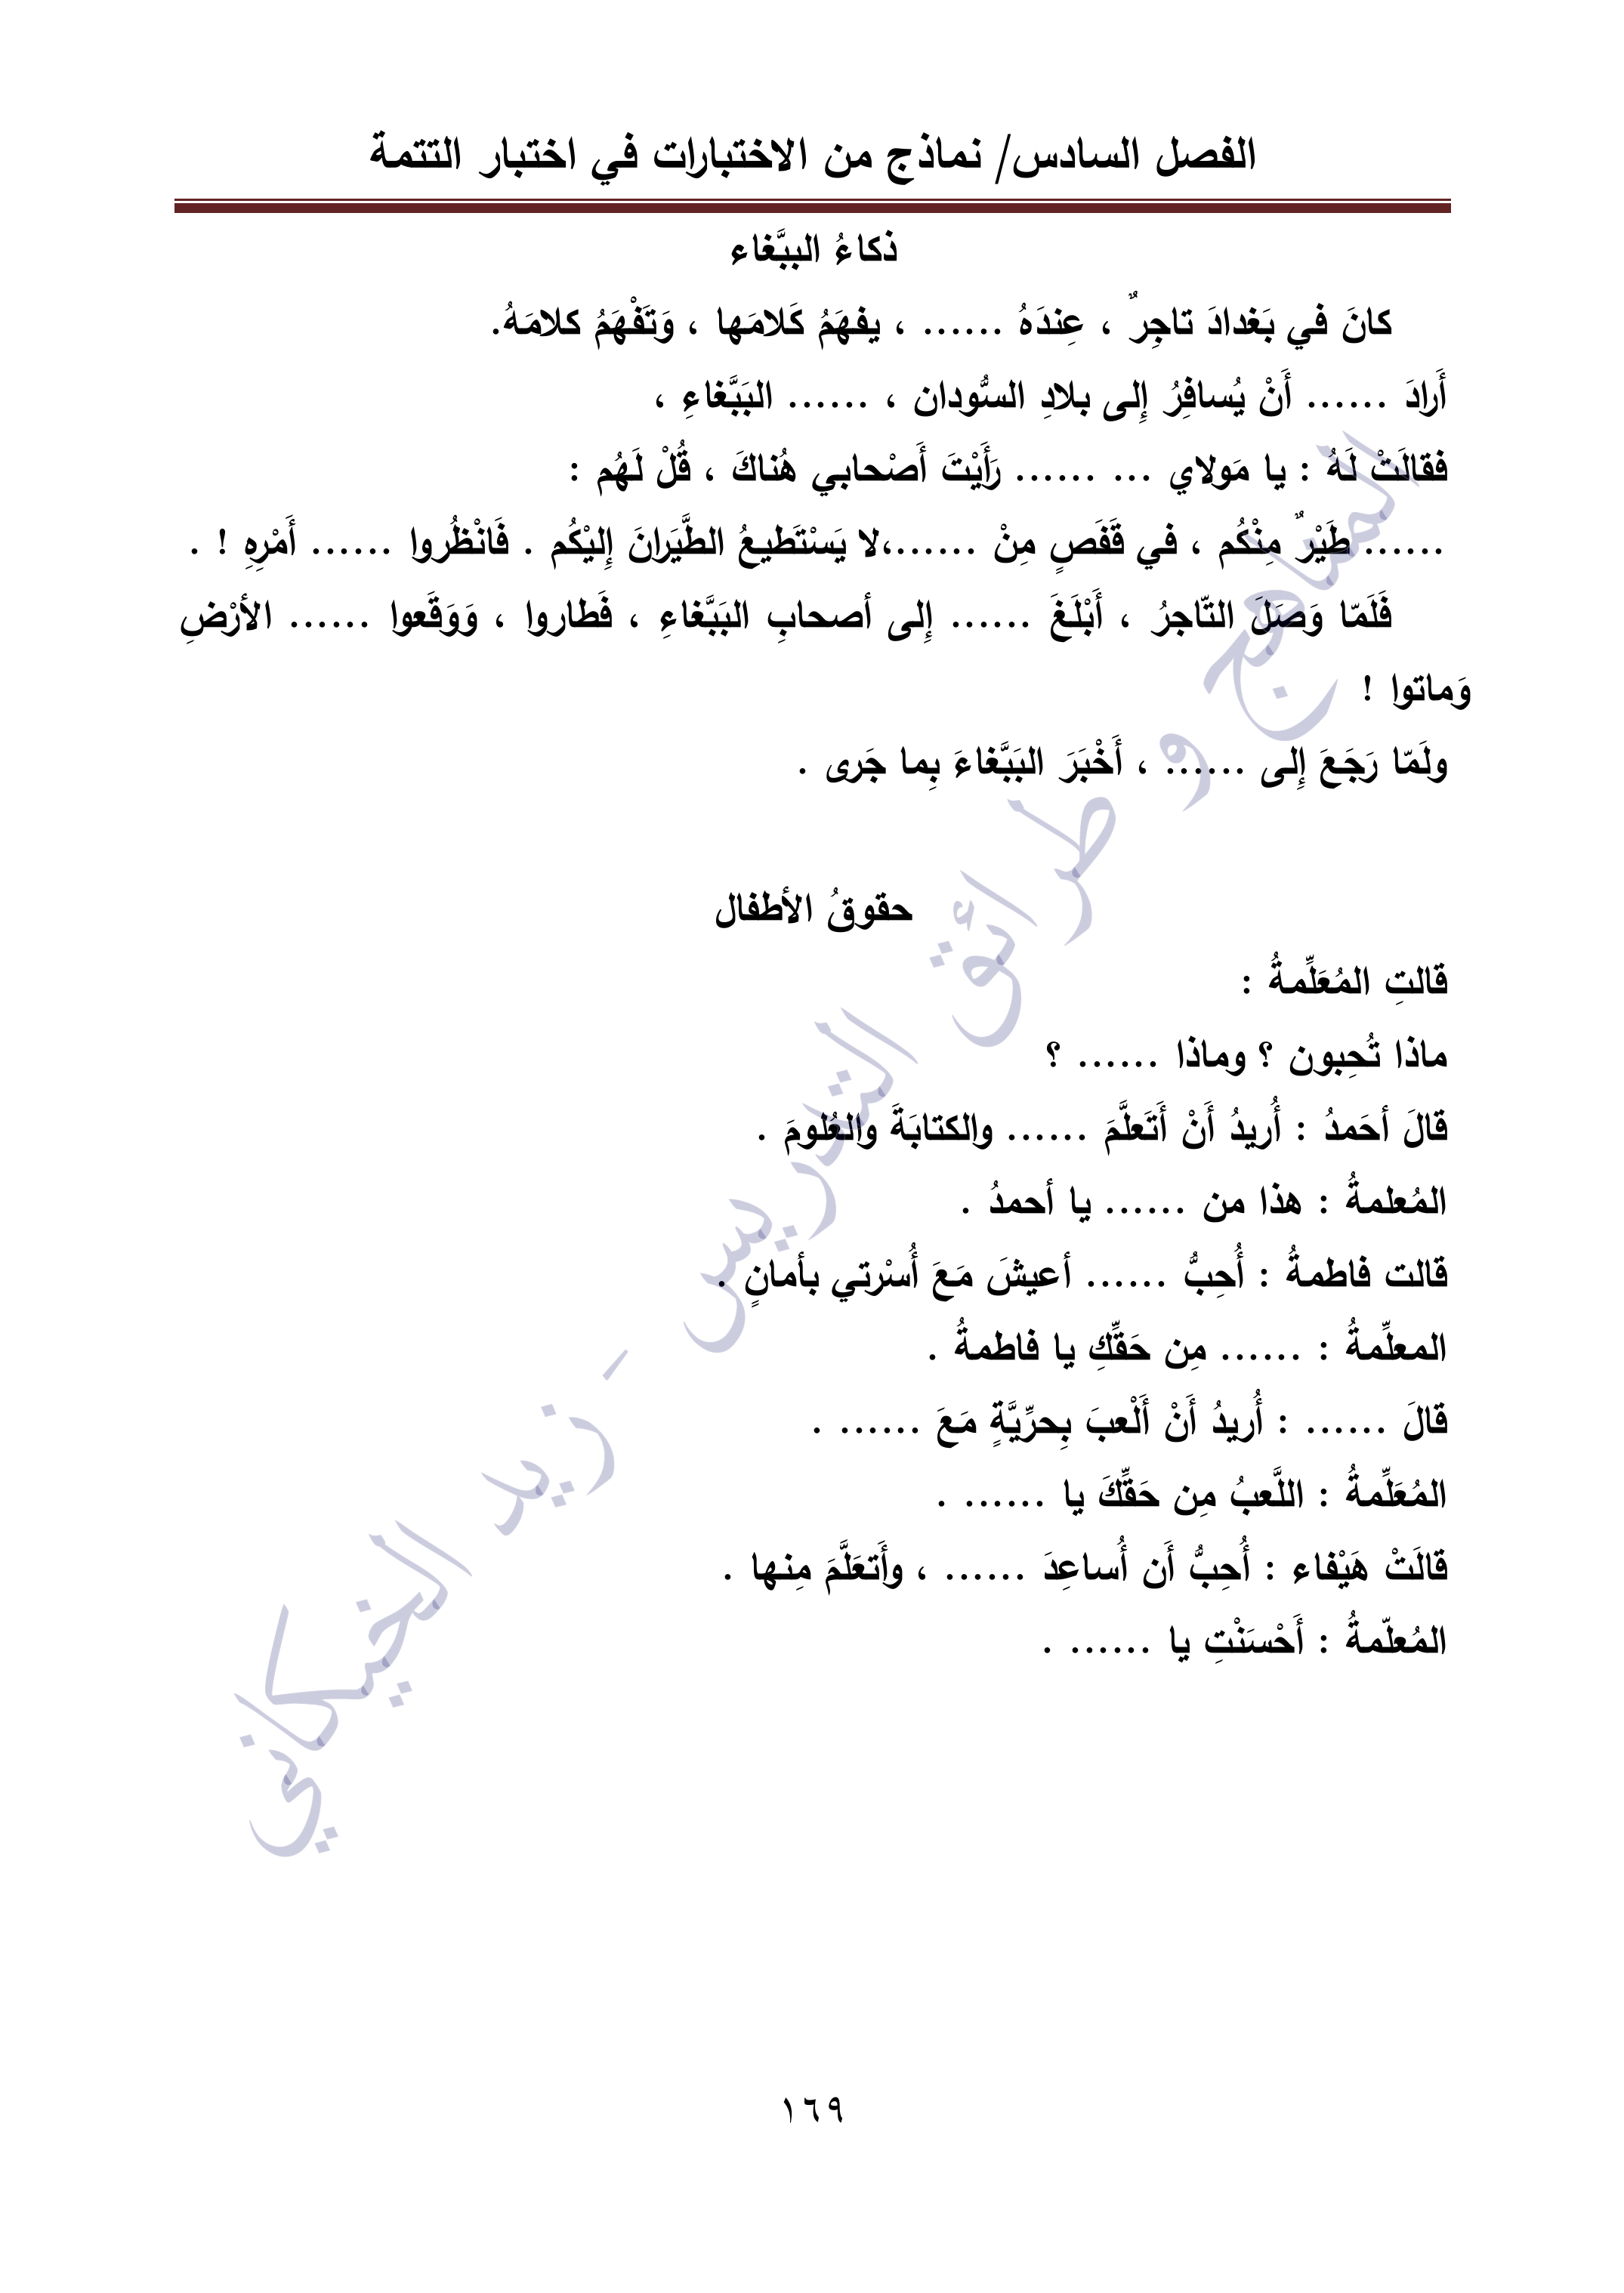 الفصل السادس/ نماذج من الاختبارات في اختبار التتمة
ذكاءُ الببَّغاء
كانَ في بَغدادَ تاجِرٌ ، عِندَهُ ...... ، يفهَمُ كَلامَها ، وَتَفْهَمُ كلامَهُ.
أَرادَ ...... أَنْ يُسافِرُ إِلى بلادِ السُّودان ، ...... البَبَّغاءِ ،
فقالَتْ لَهُ : يا مَولاي ... ...... رَأَيْتَ أَصْحابي هُناكَ ، قُلْ لَهُم :
...... طَيْرٌ مِنْكُم ، في قَفَصٍ مِنْ ......،لا يَسْتَطيعُ الطَّيَرانَ إِليْكُم . فَانْظُروا ...... أَمْرِهِ ! .
فَلَمّا وَصَلَ التّاجرُ ، أَبْلَغَ ...... إِلى أصحابِ البَبَّغاءِ ، فَطاروا ، وَوَقَعوا ...... الأرْضِ
وَماتوا !
ولَمّا رَجَعَ إِلى ...... ، أَخْبَرَ البَبَّغاءَ بِما جَرى .
حقوقُ الأطفال
قالتِ المُعَلِّمةُ :
ماذا تُحِبون ؟ وماذا ...... ؟
قالَ أحَمدُ : أُريدُ أَنْ أَتَعلَّمَ ...... والكتابَةَ والعُلومَ .
المُعلمةُ : هذا من ...... يا أحمدُ .
قالت فاطمةُ : أُحِبُّ ...... أعيشَ مَعَ أُسْرتي بأمانٍ .
المعلِّمةُ : ...... مِن حَقِّكِ يا فاطمةُ .
قالَ ...... : أُريدُ أَنْ أَلْعبَ بِحرِّيَّةٍ مَعَ ...... .
المُعَلِّمةُ : اللَّعبُ مِن حَقِّكَ يا ...... .
قالَتْ هَيْفاء : أُحِبُّ أَن أُساعِدَ ...... ، وأَتعَلَّمَ مِنها .
المُعلّمةُ : أَحْسَنْتِ يا ...... .
المناهج و طرائق التدريس - زيد الخيكاني
١٦٩